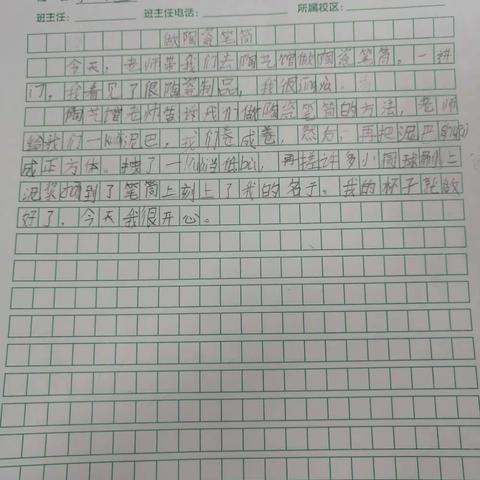 班主任： 班主任电话： 所属校区：
做陶瓷笔筒
今天，老师带我们去陶艺馆做陶瓷笔筒。一进
门，我看见了很陶瓷制品，我很
陶艺馆老师告诉我们做陶瓷笔筒的方法，老师
给我们一kuài泥巴，我们卷成卷，然后，再把泥巴
成正方体。找了一kuài当作，再搓许多小圆球刷上
泥浆到了笔筒上刻上了我的名子。我的杯子就做
好了，今天我很开心。